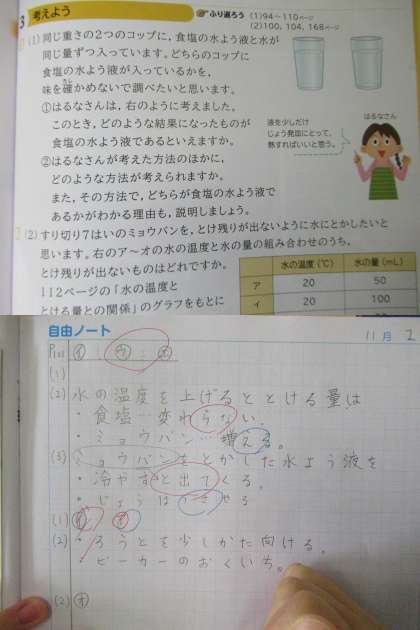 3 考えよう
ふり返ろう (1)94～110ページ
(2)100, 104, 168ページ
(1) 同じ重さの2つのコップに, 食塩の水よう液と水が
同じ量ずつ入っています。どちらのコップに
食塩の水よう液が入っているかを,
味を確かめないで調べたいと思います。
たし
①はるなさんは, 右のように考えました。
このとき, どのような結果になったものが
食塩の水よう液であるといえますか。
②はるなさんが考えた方法のほかに,
どのような方法が考えられますか。
また, その方法で, どちらが食塩の水よう液で
あるかがわかる理由も, 説明しましょう。
はるなさん
液を少しだけ
じょう発皿にとって,
熱すればいいと思う。
(2) すり切り7はいのミョウバンを, とけ残りが出ないように水にとかしたいと
思います。右のア～オの水の温度と水の量の組み合わせのうち,
とけ残りが出ないものはどれですか。
112ページの「水の温度と
とける量との関係」のグラフをもとに
水の温度(℃) 水の量(mL)
ア 20 50
イ 20 100
自由ノート
11月 2
(1)
(2) 水の温度を上げるととける量は
・食塩…変わらない
・ミョウバン…増える。
(3) ミョウバンをとかした水よう液を
・冷やすと出てくる。
・じょうはつさせる
(1)
(2)・ろうとを少しかた向ける。
・ビーカーのおくいち。
(2) オ